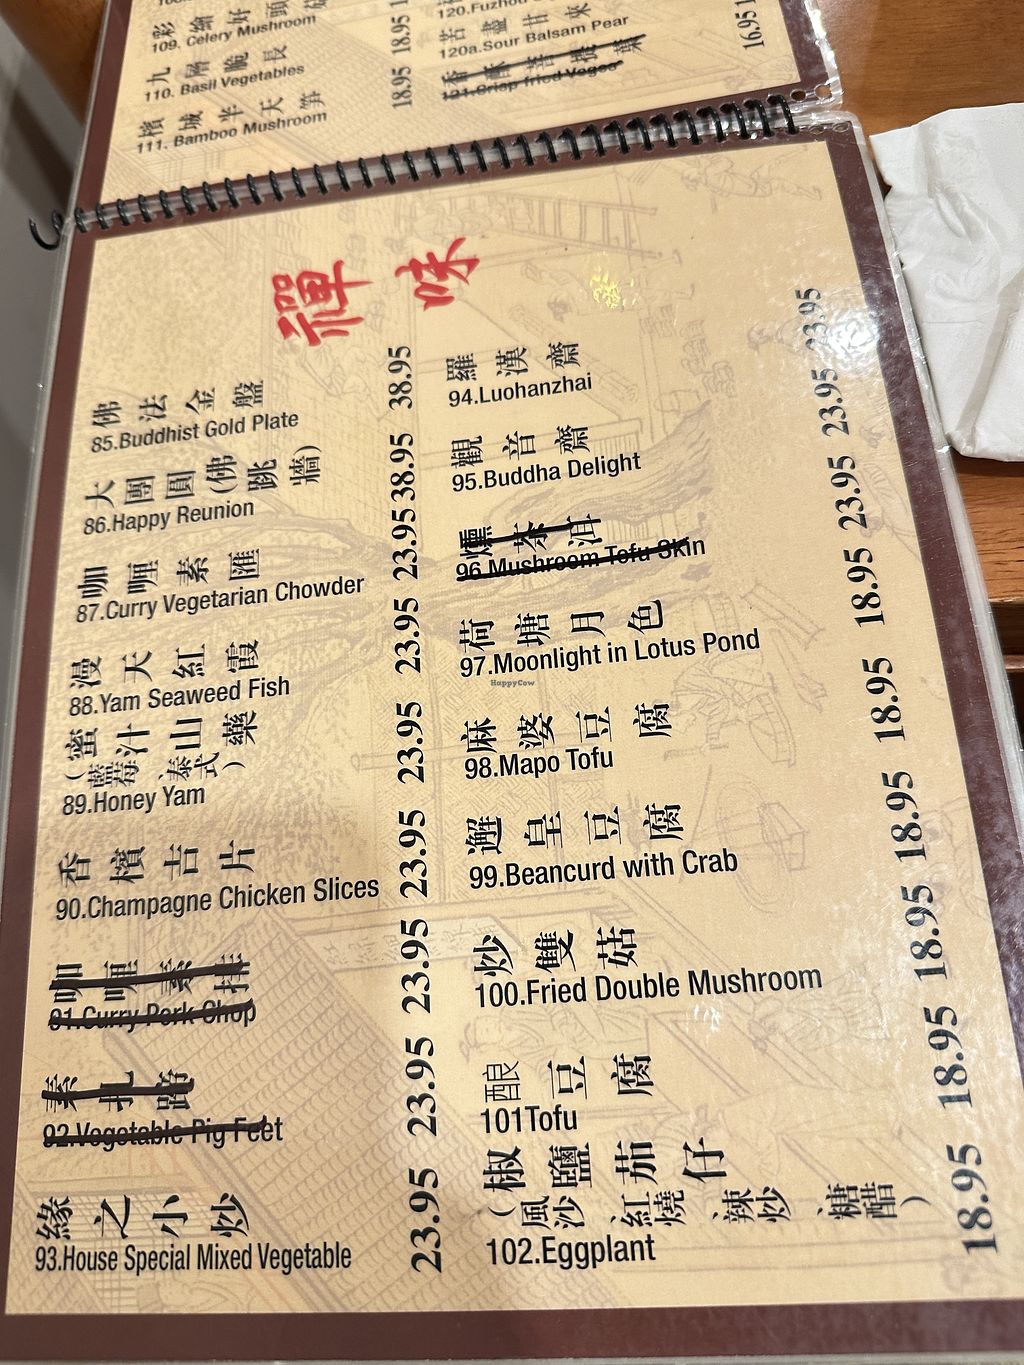 彩繪好頭菇
109. Celery Mushroom 18.95
九層脆長
110. Basil Vegetables 18.95
檳城半天筍
111. Bamboo Mushroom
120.Fuzhou
苦盡甘來
120a.Sour Balsam Pear
121.Crisp fried Veges 16.95
禪味
佛法金盤
85.Buddhist Gold Plate 38.95
大團圓(佛跳牆)
86.Happy Reunion 38.95
咖喱素匯
87.Curry Vegetarian Chowder 23.95
漫天紅霞
88.Yam Seaweed Fish 23.95
蜜汁山藥
(藍莓、泰式)
89.Honey Yam 23.95
香檳吉片
90.Champagne Chicken Slices 23.95
咖喱素排
91.Curry Pork Chop 23.95
素扎蹄
92.Vegetable Pig Feet 23.95
緣之小炒
93.House Special Mixed Vegetable 23.95
羅漢齋
94.Luohanzhai 23.95
觀音齋
95.Buddha Delight 23.95
燻茶洱
96.Mushroom Tofu Skin 23.95
荷塘月色
97.Moonlight in Lotus Pond 18.95
麻婆豆腐
98.Mapo Tofu 18.95
邂皇豆腐
99.Beancurd with Crab 18.95
炒雙菇
100.Fried Double Mushroom 18.95
酿豆腐
101Tofu 18.95
椒鹽茄仔
(風沙、紅燒、辣炒、糖醋)
102.Eggplant 18.95
HappyCow